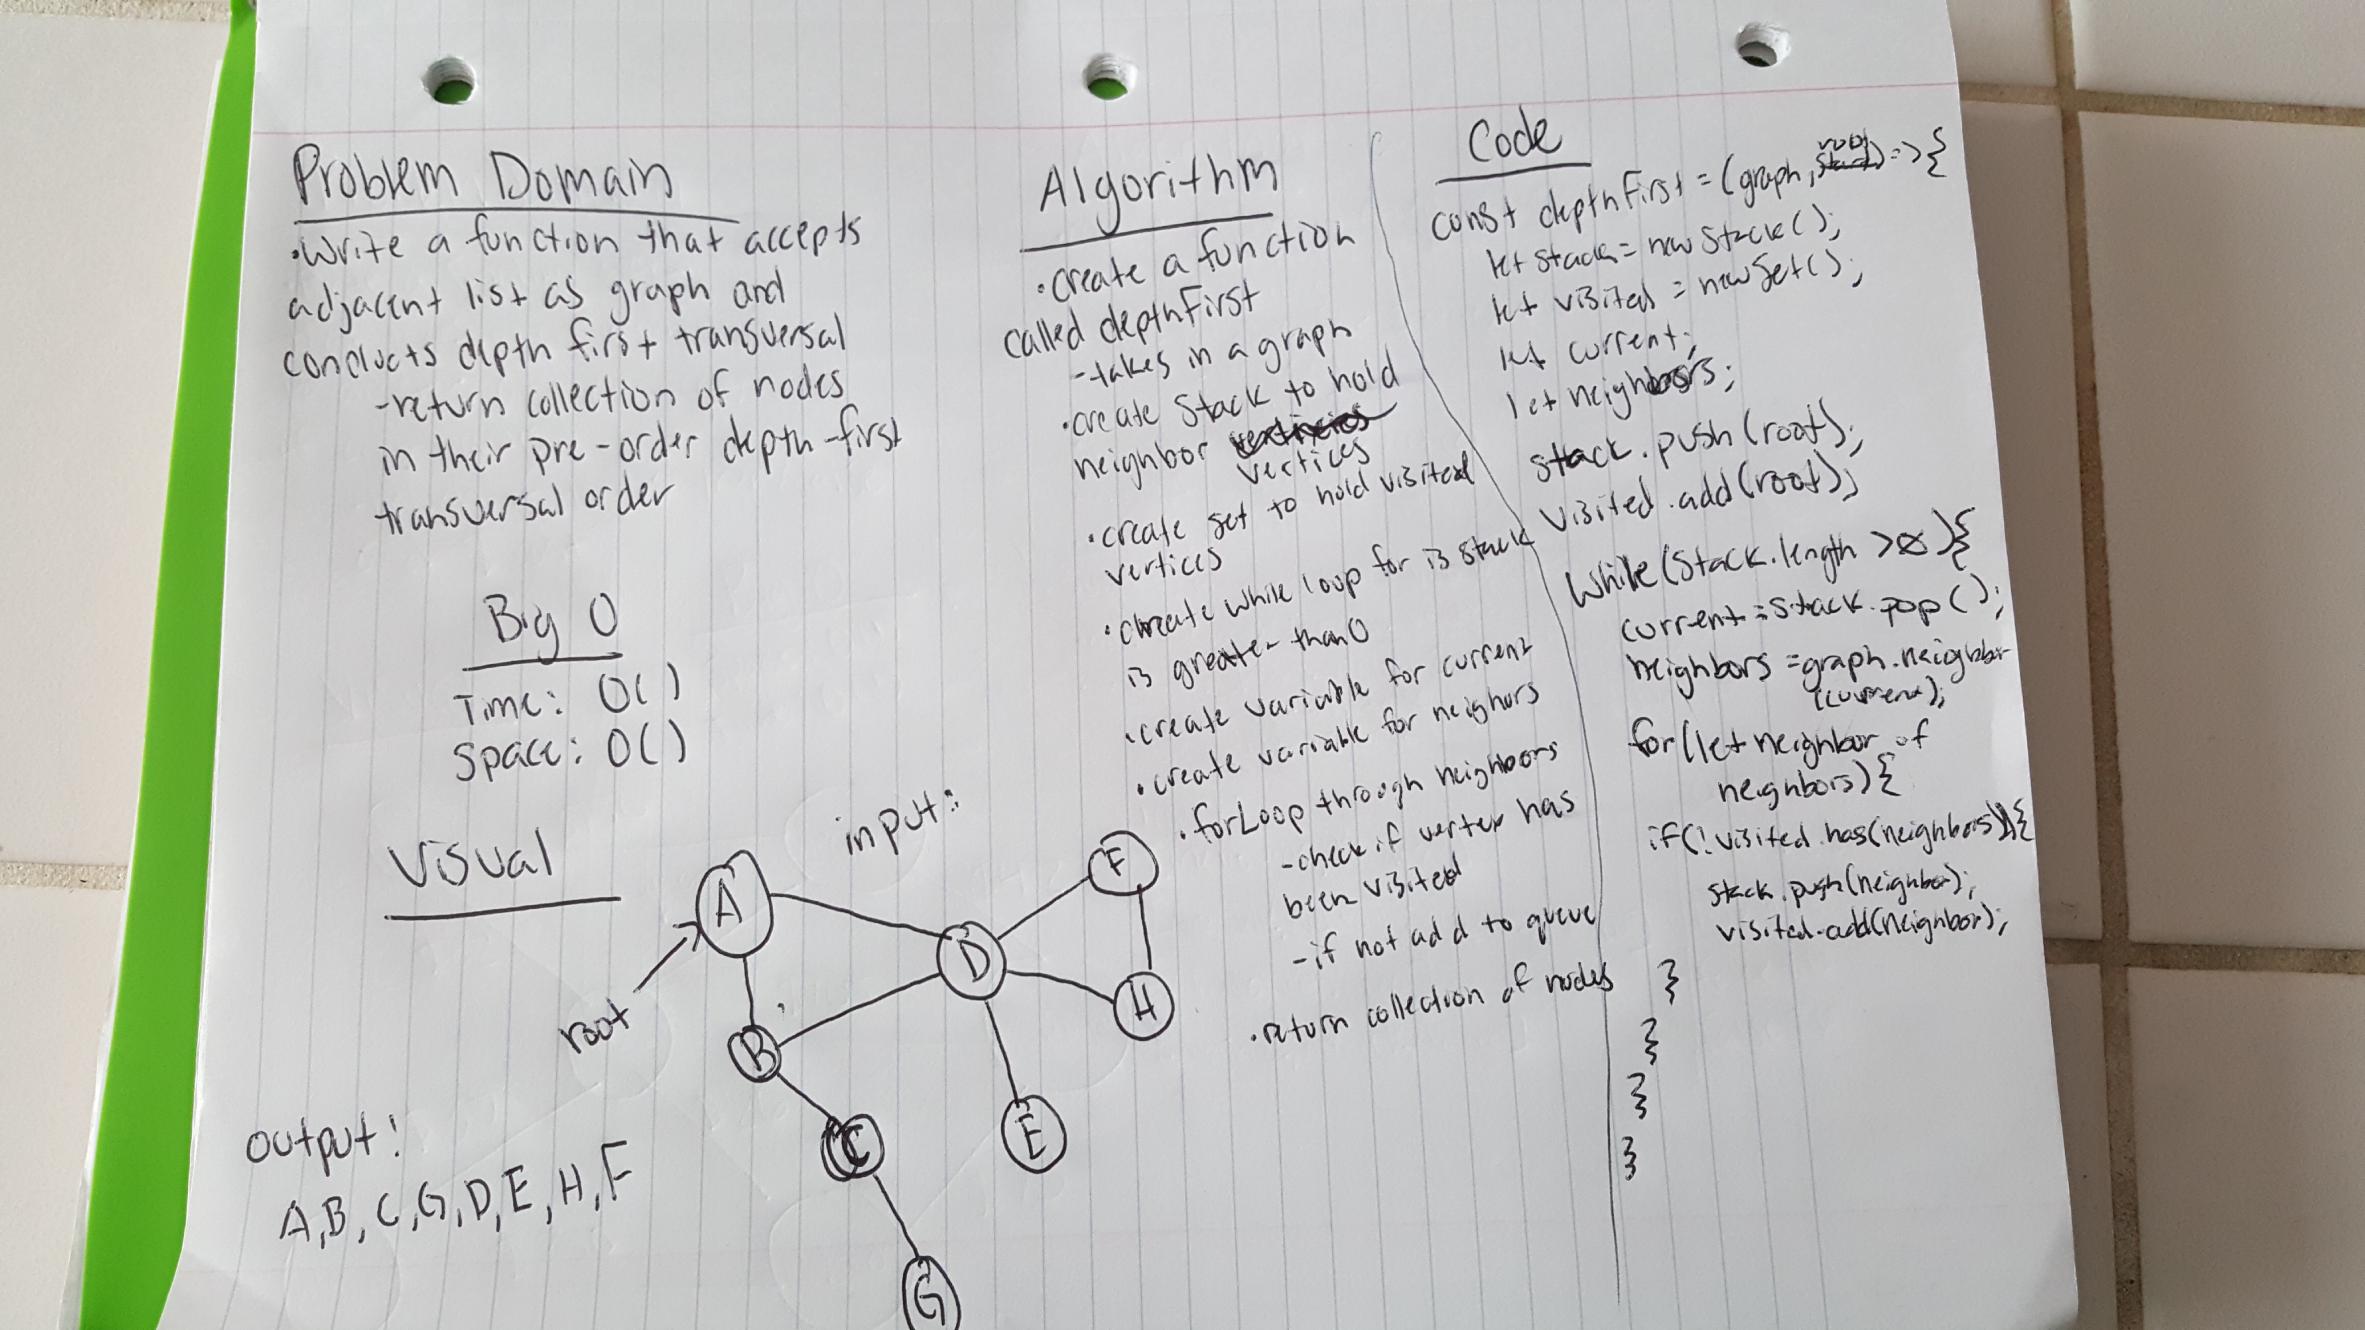 Problem Domain
•Write a function that accepts
adjacent list as graph and
conducts depth first transversal
-return collection of nodes
in their pre-order depth-first
transversal order
Big O
Time: O( )
Space: O( )
Visual
input:
A
F
D
H
root
B
C
E
G
output:
A, B, C, G, D, E, H, F
Algorithm
•create a function
called depthFirst
-takes in a graph
•create Stack to hold
neighbor
vertices
•create set to hold visited
vertices
•create while loop for is stack
is greater than 0
•create variable for current
•create variable for neighors
•forLoop through neighbors
-check if vertex has
been visited
-if not add to queue
•return collection of nodes
Code
root
const depthFirst = (graph, start) => {
let stack = new Stack();
let visited = new Set();
let current;
let neighbors;
stack.push(root);
visited.add(root);
while(stack.length > 0){
current = stack.pop();
neighbors = graph.neighbor
(current);
for(let neighbor of
neighbors){
if(!visited.has(neighbors)){
stack.push(neighbor);
visited.add(neighbor);
}
}
}
}